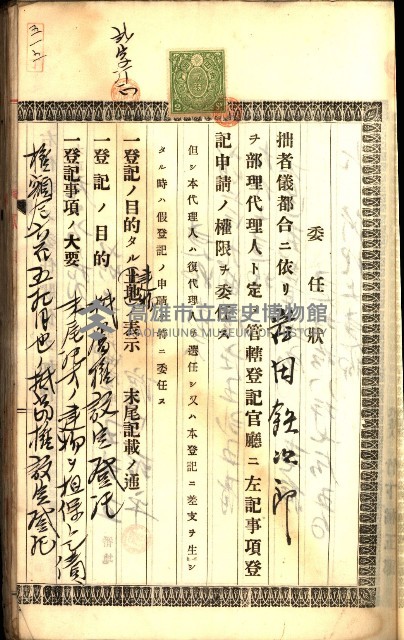 委任狀
拙者儀都合ニ依リ岩田鉄次郎
ヲ部理代理人ト定メ管轄登記官廳ニ左記事項登
記申請ノ權限ヲ委任ス
但シ本代理人ハ復代理人ヲ選任シ又ハ本登記ニ差支ヲ生シ
タル時ハ假登記ノ申請ヲ特ニ委任ス
一登記ノ目的タル土地建物ノ表示 末尾記載ノ通
一登記ノ目的 抵當權設定登記
一登記事項ノ大要 末尾記載ノ建物ヲ担保
抵當權設定登記
高雄市立歷史博物館
KAOHSIUNG MUSEUM OF HISTORY